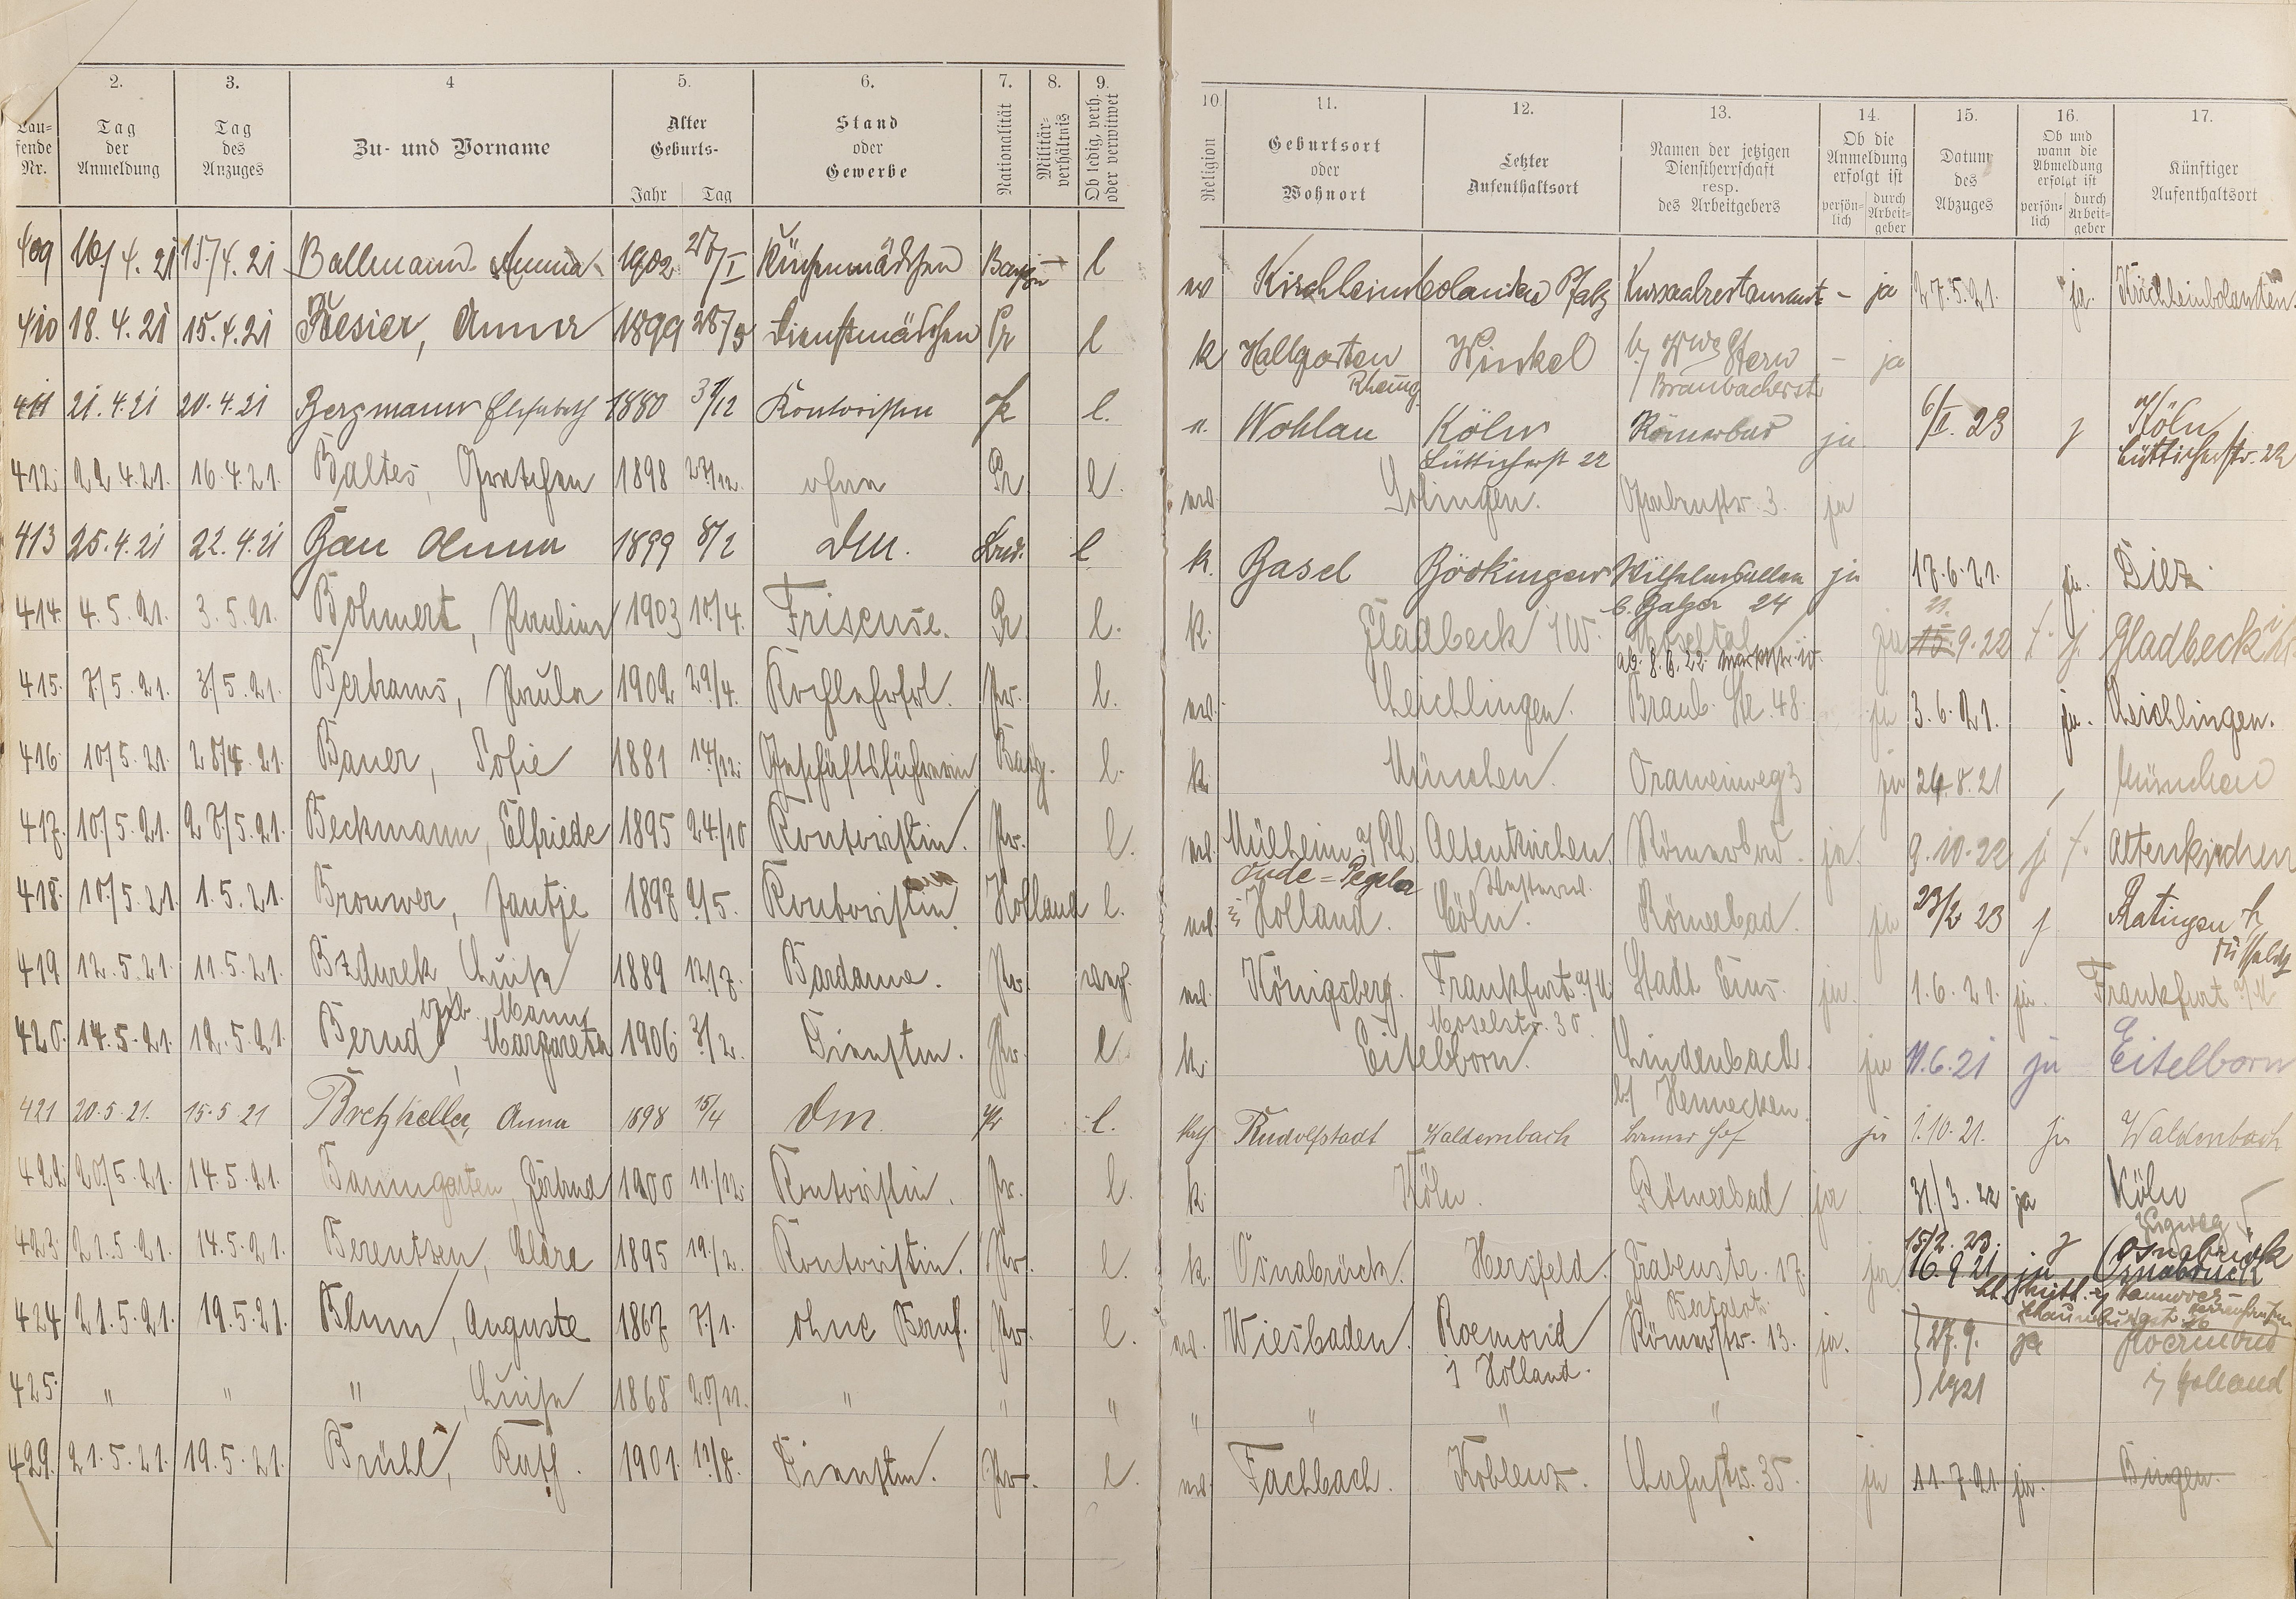 2. 3. 4 5. 6. 7. 8. 9. 10. 11. 12. 13. 14. 15. 16. 17.
Lau-
fende
Nr.
Tag
der
Anmeldung
Tag
des
Anzuges
Zu- und Vorname
Alter
Geburts-
Jahr Tag
Stand
oder
Gewerbe
Nationalität
Militär-
verhältnis
Ob ledig, verh.
oder verwitwet
Religion
Geburtsort
oder
Wohnort
Letzter
Aufenthaltsort
Namen der jetzigen
Dienstherrschaft
resp.
des Arbeitgebers
Ob die
Anmeldung
erfolgt ist
persön-
lich
durch
Arbeit-
geber
Datum
des
Abzuges
Ob und
wann die
Abmeldung
erfolgt ist
persön-
lich
durch
Arbeit-
geber
Künftiger
Aufenthaltsort
409 16/4. 21 15./4. 21 Ballmann Anna 1902 27/I Küchenmädchen l Kirchheimbolanden Pfalz Kursaalrestaurant - ja 27.5.21. ja. Kirchheimbolanden.
410 18. 4. 21 15. 4. 21 Besier, Anna 1899 Dienstmädchen Pr l k Hallgarten Winkel b/ Wwe Stern - ja
Rheing. Braubacherstr
411 21. 4. 21 20. 4. 21 Bergmann Elisabeth 1880 31/12 Kontoristin l. Wohlau Köln Römerbad ja 6/II. 23 j Köln
Lütticherst 22 Lütticherstr. 22
412. 22 4. 21. 16. 4. 21. Baltes, Gretchen 1898 27/12. ohne Pr l. Solingen. Grabenstr. 3. ja
413 25. 4. 21 22. 4. 21 Bau Anna 1899 8/2 Dm. l k. Basel Böckingen Wilhelmsallee ja 17. 6. 21. ja. Diez
b. Balzer 24
414. 4. 5. 21. 3. 5. 21. Bohmert, Pauline 1903 10/4. Friseuse. Pr l. k. Gladbeck i/W. ja 15. 9. 22 j. Gladbeck i/W.
ab. 8. 6. 22. Marktstr. 10.
415. 7/5. 21. 3/5. 21. Bertrams, Paula 1902 29/4. Kochlehrfrl. Pr. l. Leichlingen. Braub. Str. 48. ja 3. 6. 21. ja. Leichlingen.
416. 10./5. 21. 28/4. 21. Bauer, Sofie 1881 14/12. Geschäftsführerin Bay. l. k. München. Oranienweg 3 ja 24. 8. 21 München
417. 10/5. 21. 2 /5. 21. Beckmann, Elfriede 1895 24./10 Kontoristin. Pr. l. Mülheim a/Rh Altenkirchen. Römerbad. ja. 9. 10. 22 j Altenkirchen
Oude = Pegela Westerw.
418. 10./5. 21. 1. 5. 21. Brouwer, Jantje 1897 /5. Kontoristin. Holland l. in Holland. Cöln. Römerbad. ja 23/2 23 j Ratingen b/
Düsseldf
419 12. 5. 21. 11. 5. 21. Bzdurek, Luise 1889 12/7. Bardame. Pr. Königsberg. Frankfurt a/M. Stadt Ems. ja. 1. 6. 21. ja. Frankfurt a/M
Moselstr. 30.
420. 14. 5. 21. 12. 5. 21. Bernd, Margareta 1906 3/2. Dienstm. Pr. l. k. Eitelborn. Lindenbach. ja 11. 6. 21 ja Eitelborn
b/ Hennecken.
421 20. 5. 21. 15. 5 21 Bretzkeller, Anna 1898 15/4 Dm. Pr l. kath Rudolfstadt Waldernbach Bremer Hof ja 1. 10. 21. ja Waldernbach
422. 20./5. 21. 14. 5. 21. Baumgarten, 1900 11./12. Kontoristin. Pr. l. k. Köln. Römerbad ja 31/3. 22 ja Köln
423. 21. 5. 21. 14. 5. 21. Berentzen, Clara 1895 19./2. Kontoristin. Pr. l. k. Osnabrück. Hersfeld. Grabenstr. 17. ja 15/2. 23. j Osnabrück
16. 9 21 ja Osnabrück
lt. Mittl. Hannover-
424 21. 5. 21. 19. 5. 21. Blum, Auguste 1867 7/1. ohne Beruf. Pr. l. Wiesbaden. Roemond Römerstr. 13. ja. 27. 9. ja Roermond
i Holland. 1921 i/ Holland
425. " " ", Luise 1868 20/11. " " " " " " "
429. 21. 5. 21. 19. 5. 21. Brühl, Kath. 1901. 17/8. Dienstm. Pr. l. Fachbach. Koblenz. Lahnstr. 35. ja 11. 7. 21. ja. Bingen.